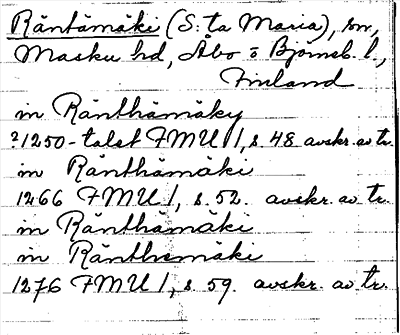 Räntämäki (S:ta Maria), sn,
Masku hd, Åbo o Björneb. l.,
Finland
in Ränthämäky
?1250-talet FMU 1, s. 48. avskr. av tr.
in Ränthämäki
1266 FMU 1, s. 52. avskr. av tr.
in Ränthämäki
in Ränthemäki
1276 FMU 1, s. 59. avskr. av tr.